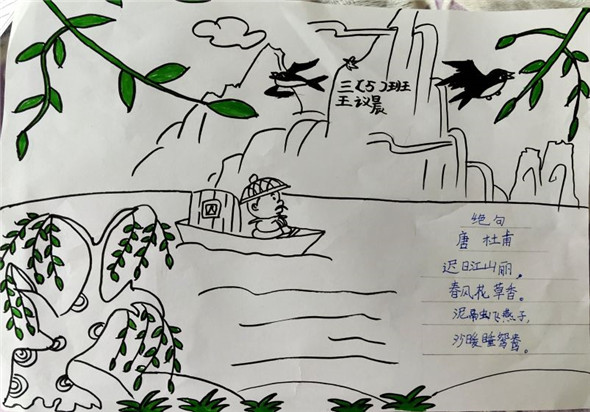 三(5)班
王议晨
绝句
唐 杜甫
迟日江山丽，
春风花草香。
泥融飞燕子，
沙暖睡鸳鸯。